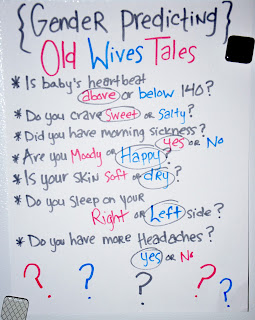 {Gender Predicting}
Old Wives Tales
* Is baby's heartbeat
above or below 140?
* Do you crave Sweet or Salty?
* Did you have morning sickness?
yes or No
* Are you Moody or Happy?
* Is your skin Soft or dry?
* Do you sleep on your
Right or Left side?
* Do you have more Headaches?
yes or No
? ? ? ? ?